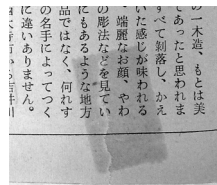 の一木造、もとは美
であったと思われま
すべて剝落し、かえ
いた感じが味われる
、端麗なお顔、やわ
の彫法などを見てい
にもあるような地方
品ではなく、何れす
の名手によってつく
に違いありません。